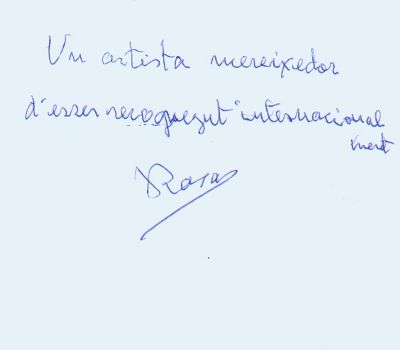 Un artista mereixedor
d'esser recognegut internacional
ment
Rosa